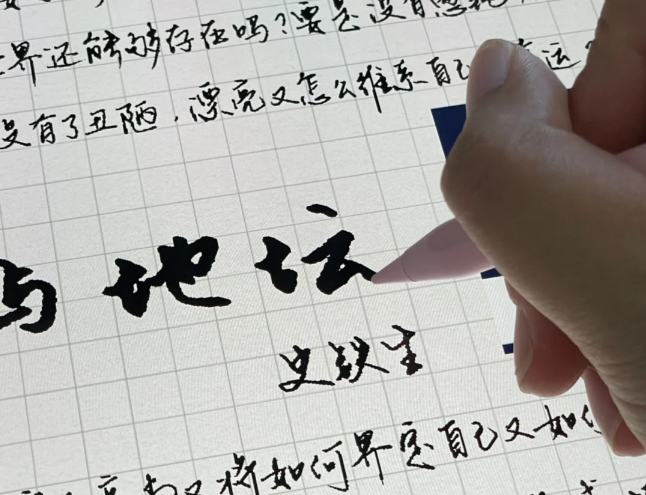 界还能够存在吗？要是没有
没有了丑陋，漂亮又怎么维系自己
与地坛
史铁生
又将如何界定自己又如何